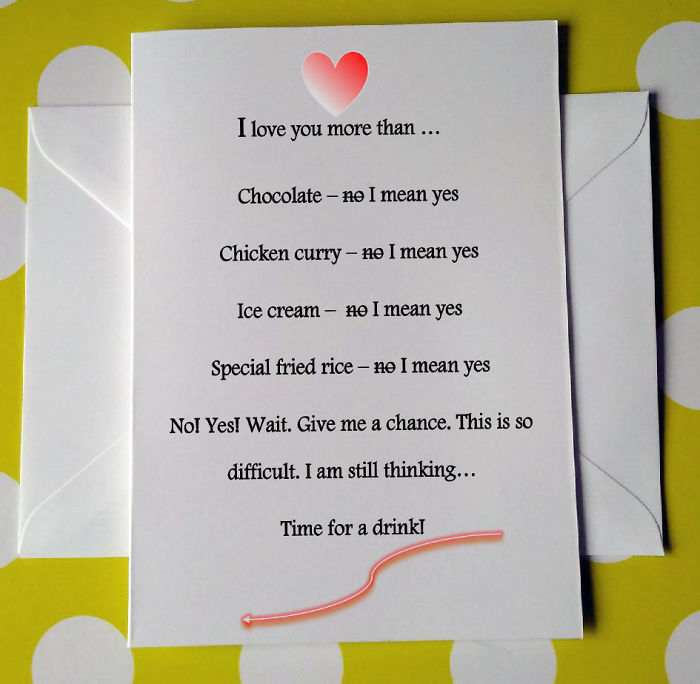 I love you more than …
Chocolate – no I mean yes
Chicken curry – no I mean yes
Ice cream – no I mean yes
Special fried rice – no I mean yes
No! Yes! Wait. Give me a chance. This is so
difficult. I am still thinking…
Time for a drink!